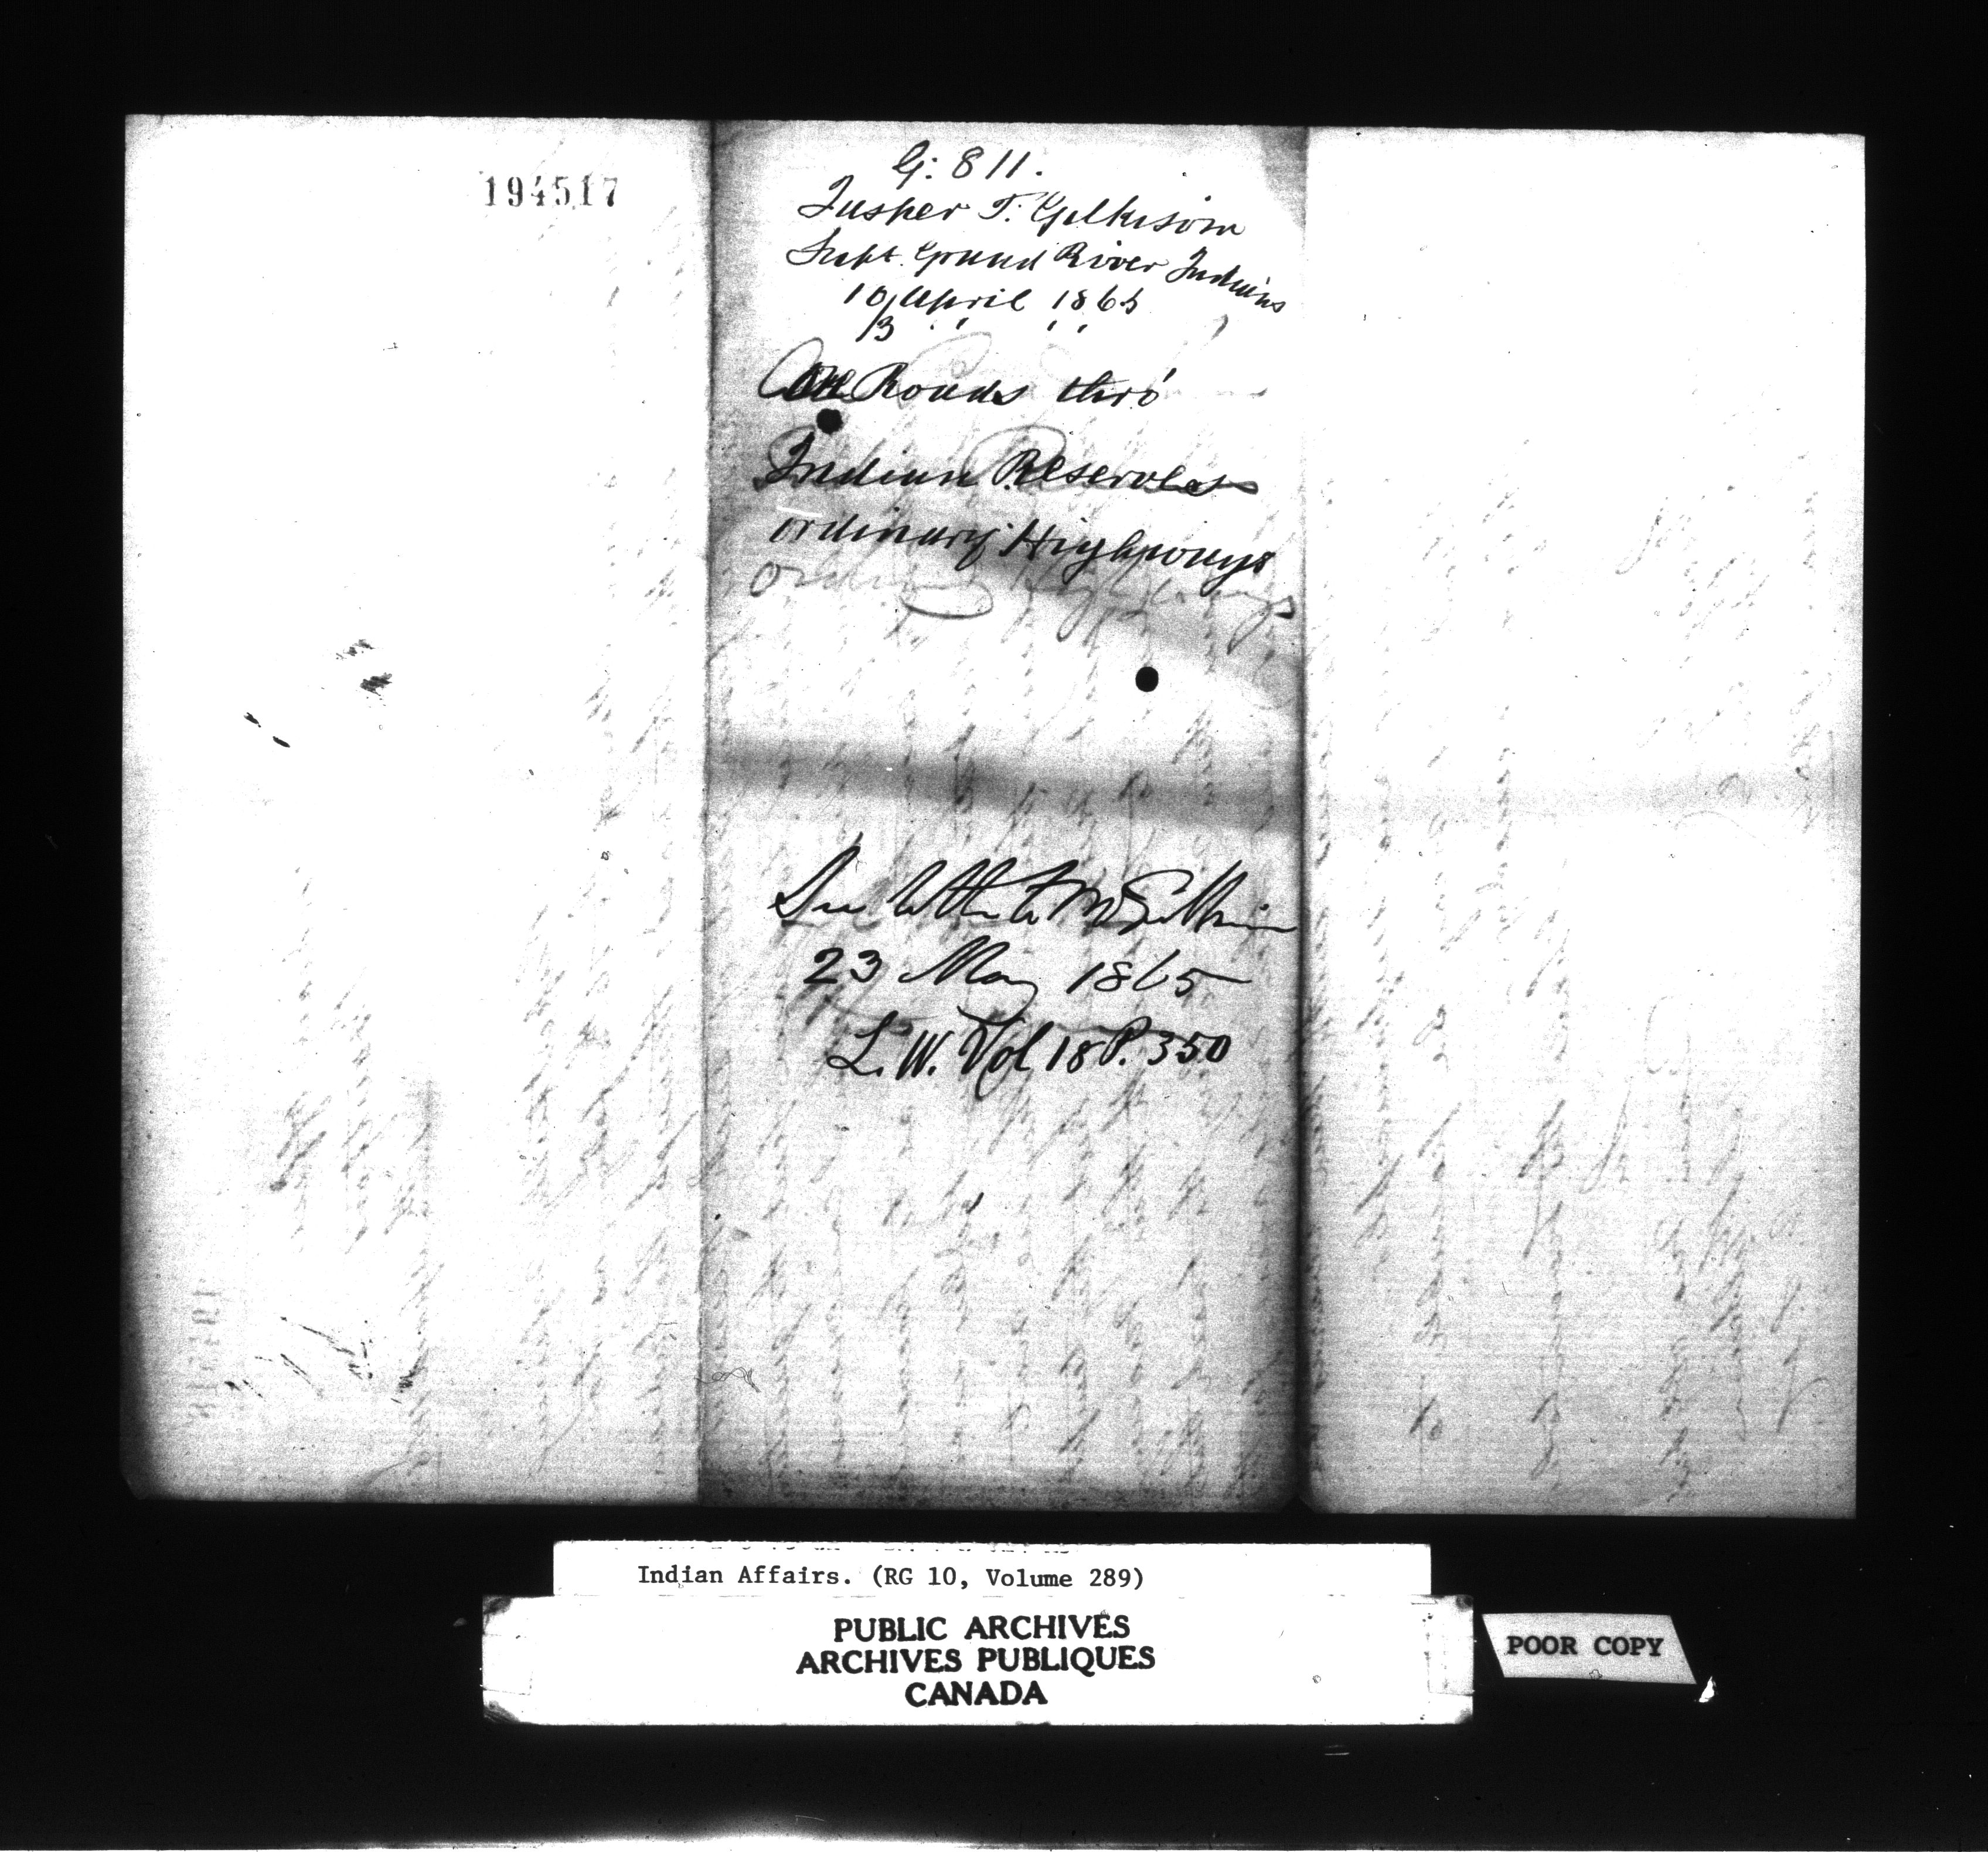 194517
G: 811.
Jasper T. Gilkison
Supt. Grand River Indians
10 April 1865
13 " "
Are Roads thro'
Indian Reserves
ordinary Highways
Ordinary Highways
See letter to Mr Gilkison
23 May 1865
L. W. Vol 18 P. 350
Indian Affairs. (RG 10, Volume 289)
PUBLIC ARCHIVES
ARCHIVES PUBLIQUES
CANADA
POOR COPY